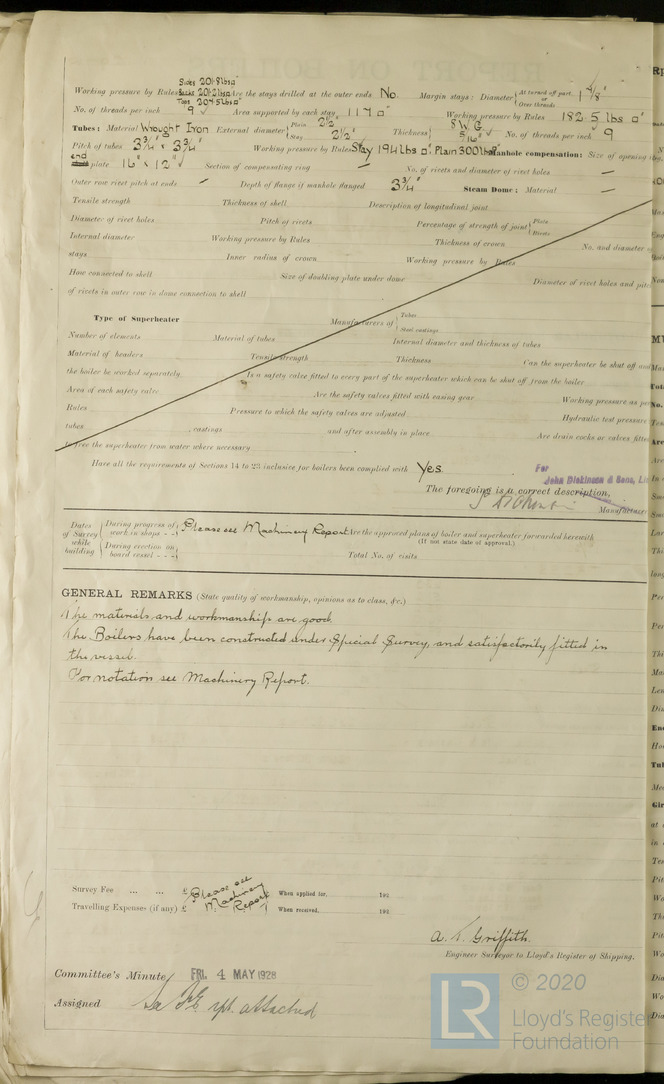 Sides 201·8 lbs□"
Working pressure by Rules Backs 201·2 lbs□" Are the stays drilled at the outer ends No. Margin stays: Diameter { At turned off part, or Over threads
Tops 204·5 lbs□"
No. of threads per inch 9 Area supported by each stay 117 □" Working pressure by Rules 182·5 lbs □"
Tubes: Material Wrought Iron External diameter { Plain 2½" Stay 2½" Thickness { S.W.G. 5/16" No. of threads per inch 9
Pitch of tubes 3¾" x 3¾" Working pressure by Rules Stay 194 lbs □" Plain 300 lbs□" Manhole compensation: Size of opening
end plate 16" x 12" Section of compensating ring No. of rivets and diameter of rivet holes —
Outer row rivet pitch at ends Depth of flange if manhole flanged 3¾" Steam Dome: Material —
Tensile strength Thickness of shell Description of longitudinal joint
Diameter of rivet holes Pitch of rivets Percentage of strength of joint { Plate Rivets
Internal diameter Working pressure by Rules Thickness of crown No. and diameter
stays Inner radius of crown Working pressure by Rules
How connected to shell Size of doubling plate under dome Diameter of rivet holes and
of rivets in outer row in dome connection to shell
Type of Superheater Manufacturers of { Tubes Steel castings
Number of elements Material of tubes Internal diameter and thickness of tubes
Material of headers Tensile strength Thickness Can the superheater be shut off
the boiler be worked separately Is a safety valve fitted to every part of the superheater which can be shut off from the boiler
Area of each safety valve Are the safety valves fitted with easing gear Working pressure as
Rules Pressure to which the safety valves are adjusted Hydraulic test pressure
tubes , castings and after assembly in place Are drain cocks or valves
to free the superheater from water where necessary
Have all the requirements of Sections 14 to 23 inclusive for boilers been complied with Yes.
For
John Dickinson & Sons,
The foregoing is a correct description,
Manufacturer
Dates of Survey while building { During progress of work in shops - - Please see Machinery Report Are the approved plans of boiler and superheater forwarded herewith
(If not state date of approval.)
During erection on board vessel - - - Total No. of visits
GENERAL REMARKS (State quality of workmanship, opinions as to class, &c.)
The materials and workmanship are good.
The Boilers have been constructed under Special Survey, and satisfactorily fitted in
the vessel.
For notation see Machinery Report.
Survey Fee ... ... £ Please see When applied for, 192
Travelling Expenses (if any) £ Machinery Report When received, 192
A. Griffith.
Engineer Surveyor to Lloyd's Register of Shipping.
Committee's Minute FRI. 4 MAY 1928
Assigned attached
© 2020
LR Lloyd's Register
Foundation